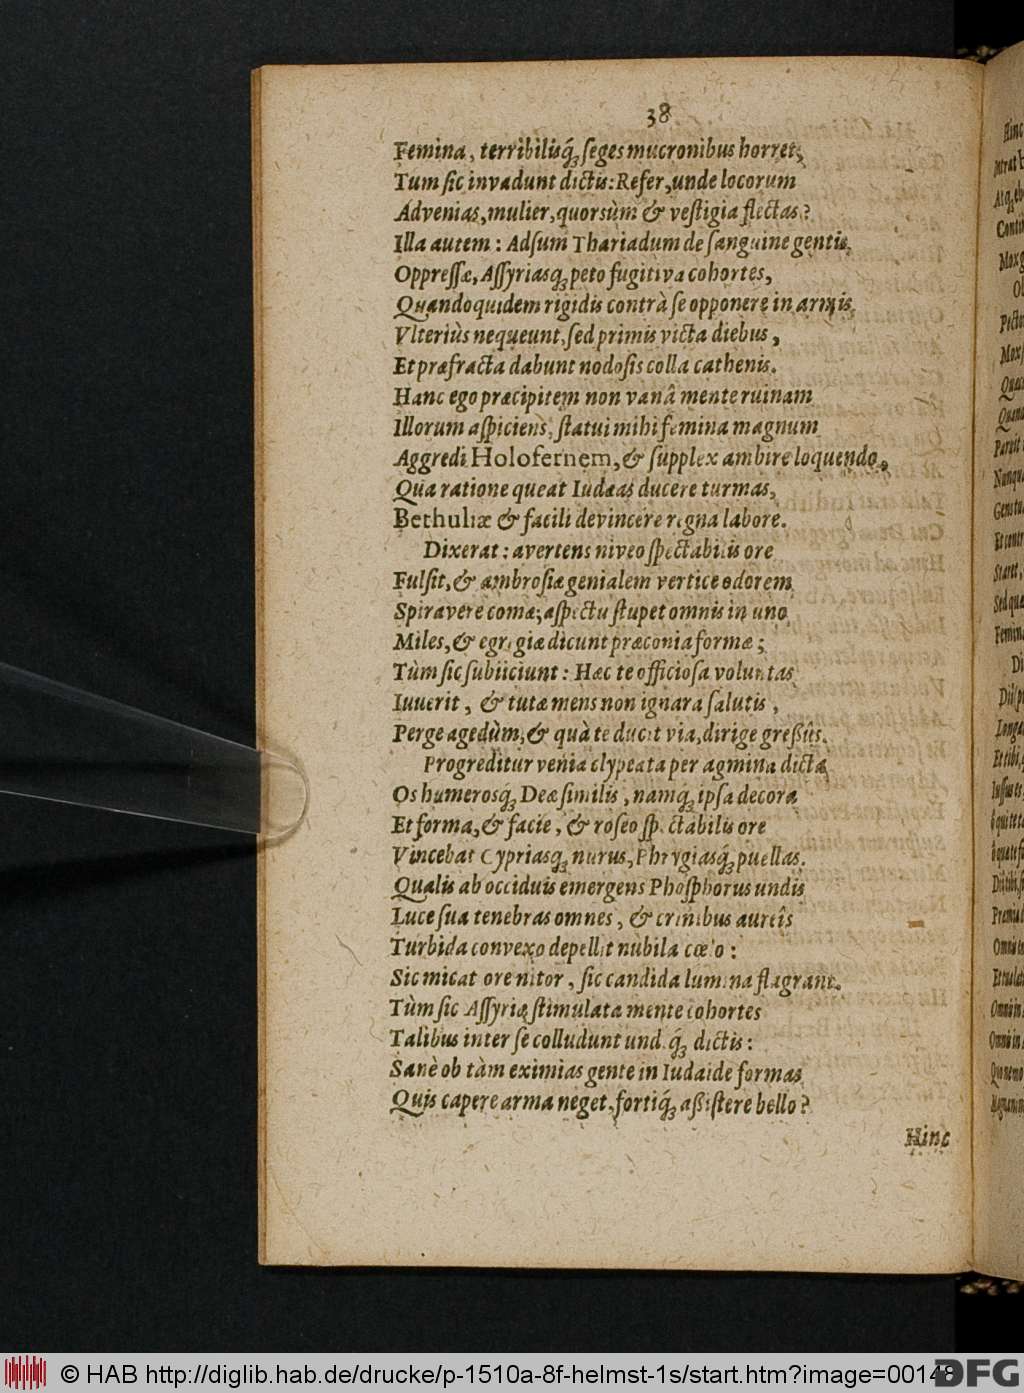 38
Femina, terribilisq́ꝫ ſeges mucronibus horret,
Tum ſic invadunt dictis: Refer, unde locorum
Advenias, mulier, quorsùm & veſtigia flectas?
Illa autem: Adſum Thariadum de ſanguine gentis,
Oppreſſæ, Aſſyriasq́ꝫ peto fugitiva cohortes,
Quandoquidem rigidis contrà ſe opponere in armis
Vlteriùs nequeunt, ſed primis victa diebus,
Et præfracta dabunt nodoſis colla cathenis.
Hanc ego præcipitem non vanâ mente ruinam
Illorum aſpiciens, ſtatui mihi femina magnum
Aggredi Holofernem, & ſupplex ambire loquendo,
Qua ratione queat Iudæas ducere turmas,
Bethuliæ & facili devincere regna labore.
Dixerat: avertens niveo ſpectabilis ore
Fulſit, & ambroſiæ genialem vertice odorem
Spiravere comæ; aſpectu ſtupet omnis in uno
Miles, & egregiæ dicunt præconia formæ;
Tùm ſic ſubiiciunt: Hæc te officioſa voluntas
Iuuerit, & tutæ mens non ignara ſalutis,
Perge agedùm, & quà te ducit via, dirige greßûs.
Progreditur venia clypeata per agmina dicta
Os humerosq́ꝫ Deæ ſimilis, namq́ꝫ ipſa decora
Et forma, & facie, & roſeo ſpectabilis ore
Vincebat Cypriasq́ꝫ nurus, Phrygiasq́ꝫ puellas.
Qualis ab occiduis emergens Phoſphorus undis
Luce ſua tenebras omnes, & crinibus aureîs
Turbida convexo depellit nubila cœlo:
Sic micat ore nitor, ſic candida lumina flagrant.
Tùm ſic Aſſyriæ ſtimulata mente cohortes
Talibus inter ſe colludunt undiq́ꝫ dictis:
Sanè ob tàm eximias gente in Iudaide formas
Quis capere arma neget, fortiq́ꝫ aßiſtere bello?
Hinc
© HAB http://diglib.hab.de/drucke/p-1510a-8f-helmst-1s/start.htm?image=00148
DFG